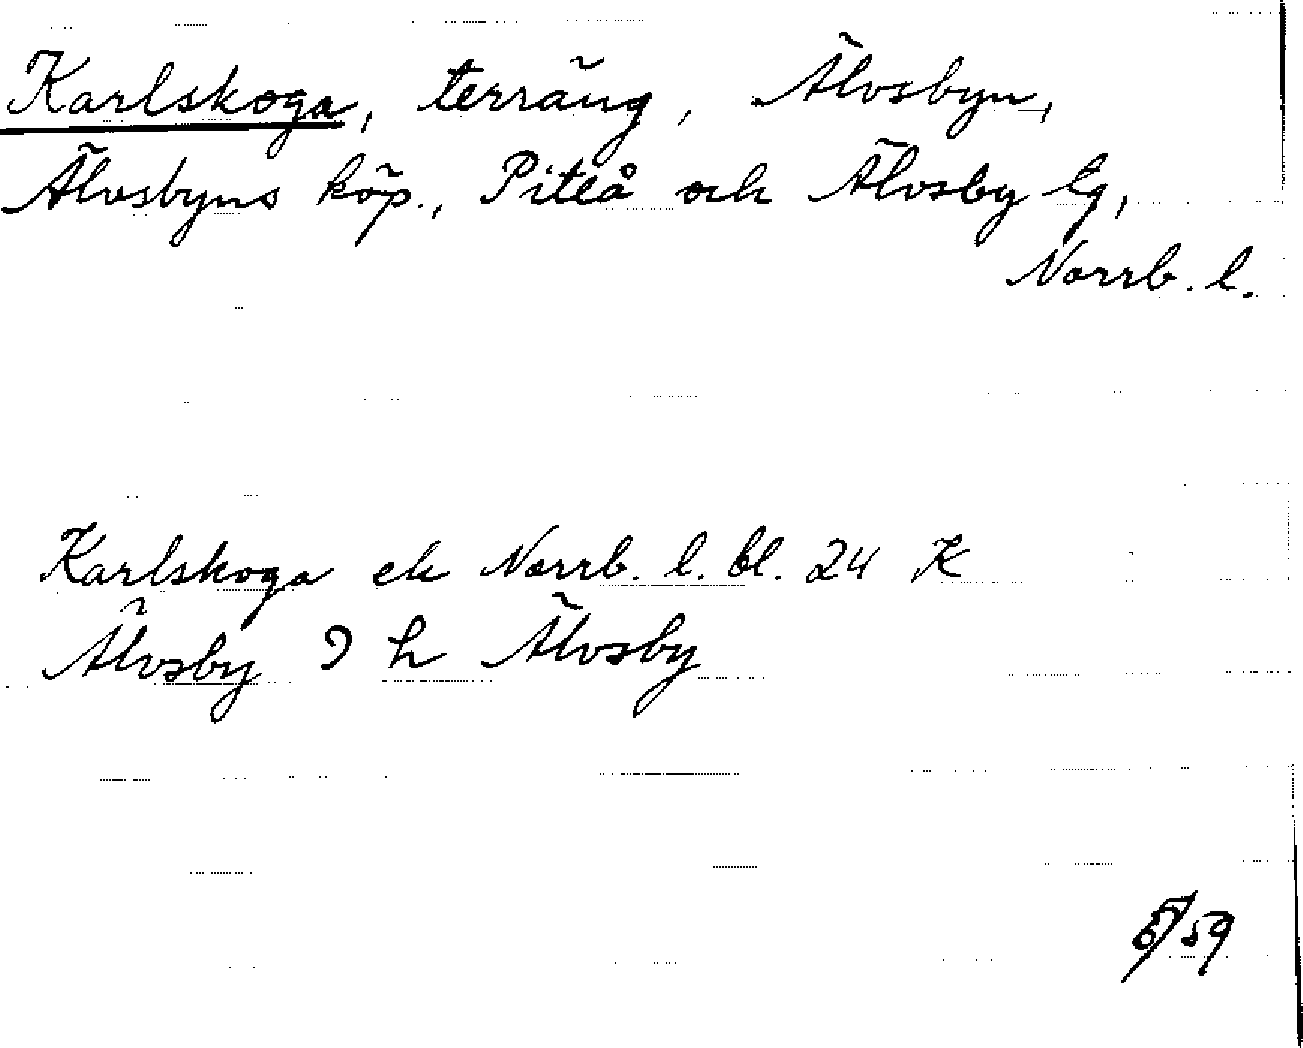 Karlskoga, terräng, Älvsbyn,
Älvsbyns köp., Piteå och Älvsby lg,
Norrb. l.
Karlskoga ek Norrb. l. bl. 24 K
Älvsby 9 h Älvsby
/59